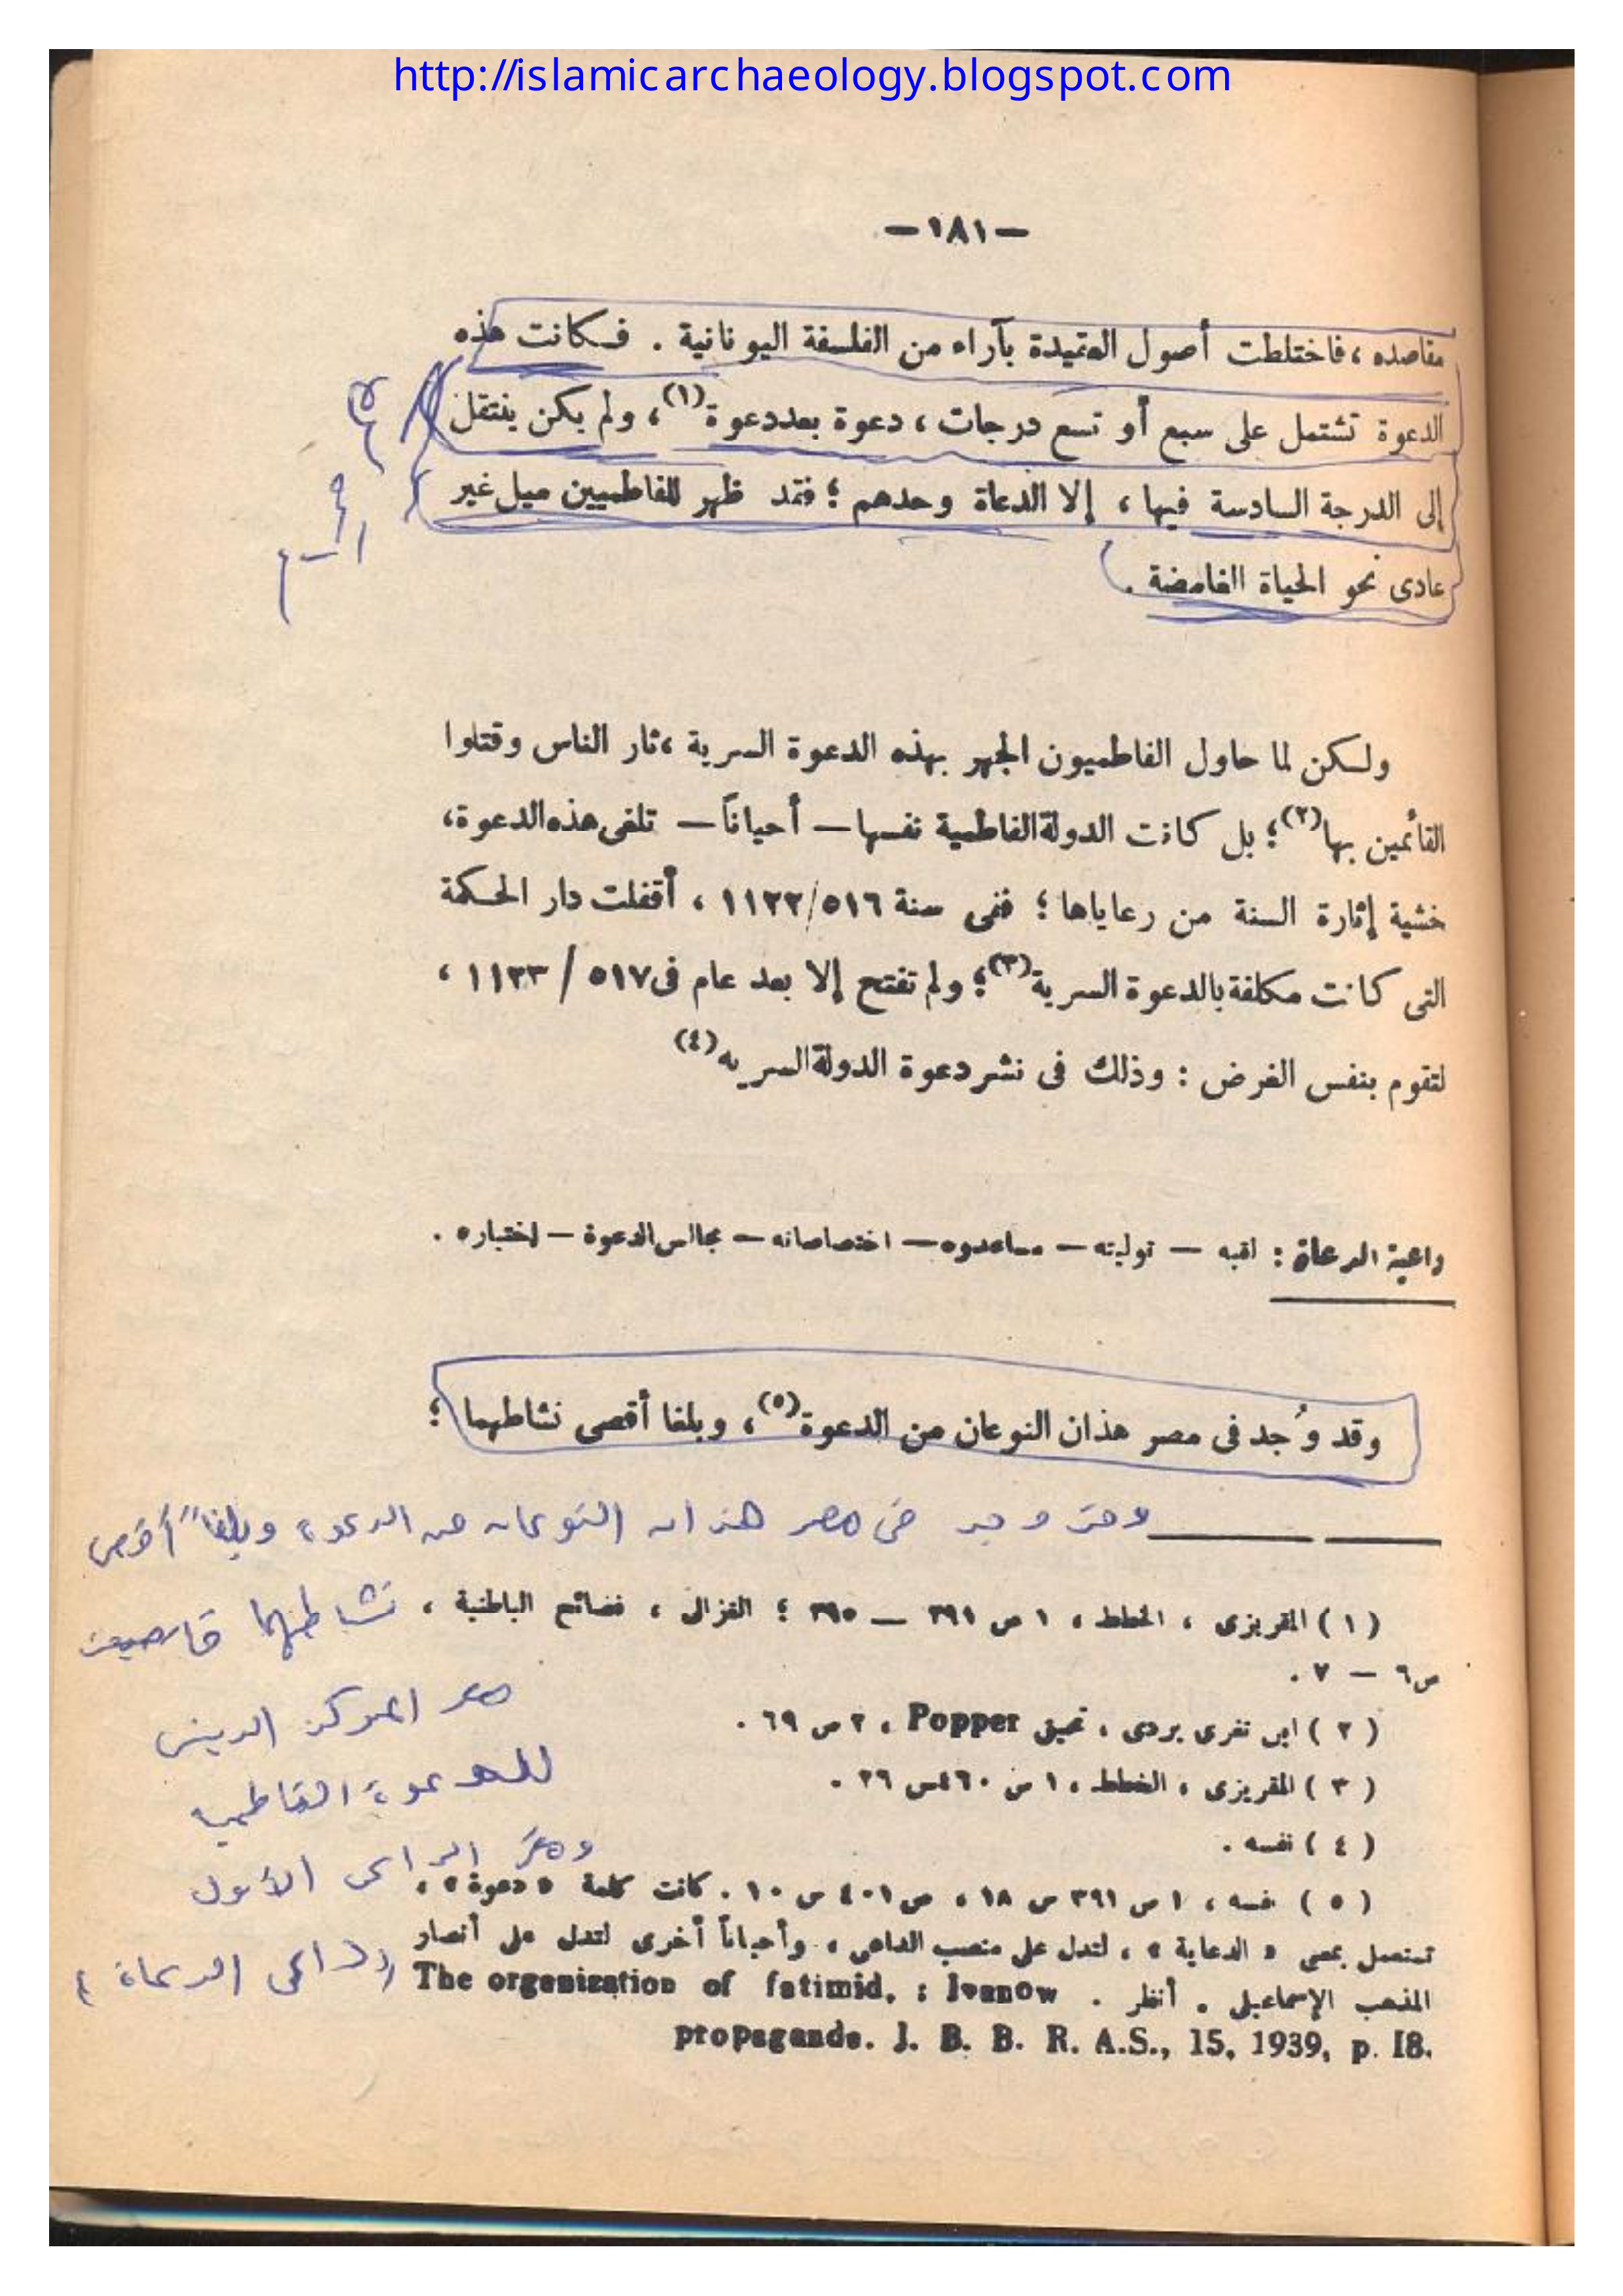 http://islamicarchaeology.blogspot.com
—١٨١—
مقاصده ، فاختلطت أصول العقيدة بآراء من الفلسفة اليونانية . فكانت هذه
الدعوة تشتمل على سبع أو تسع درجات ، دعوة بعد دعوة(١) ، ولم يكن ينتقل
إلى الدرجة السادسة فيها ، إلا الدعاة وحدهم ؛ فقد ظهر للفاطميين ميل غير
عادى نحو الحياة الغامضة .
ولكن لما حاول الفاطميون الجهر بهذه الدعوة السرية ، ثار الناس وقتلوا
القائمين بها(٢) ؛ بل كانت الدولة الفاطمية نفسها — أحياناً — تلغى هذه الدعوة ،
خشية إثارة السنة من رعاياها ؛ ففى سنة ٥١٦/ ١١٢٢ ، أقفلت دار الحكمة
التى كانت مكلفة بالدعوة السرية(٣) ؛ ولم تفتح إلا بعد عام فى ٥١٧ / ١١٢٣ ،
لتقوم بنفس الغرض : وذلك فى نشر دعوة الدولة السريه(٤)
داعية الدعاة : لقبه — توليته — مساعدوه — اختصاصاته — مجالس الدعوة — اختباره .
وقد وُجد فى مصر هذان النوعان من الدعوة(٥) ، وبلغا أقصى نشاطهما ؛
وقد وجد فى مصر هذان النوعان من الدعوة وبلغا أقصى
نشاطهما
(١) المقريزى ، الخطط ، ١ ص ٣٩١ — ٣٩٥ ؛ الغزالى ، فضائح الباطنية ،
ص٦ — ٧ .
مصر المركز الدينى
(٢) ابن تغرى بردى ، تحقيق Popper ، ٢ ص ٦٩ .
للدعوة الفاطمية
(٣) المقريزى ، الخطط ، ١ ص ٤٦٠ س ٢٦ .
(٤) نفسه .
الداعى الأول
(٥) نفسه ، ١ ص ٣٩١ س ١٨ ، ص ٤٠١ س ١٠ . كانت كلمة « دعوة » ،
تستعمل بمعنى « الدعاية » ، لتدل على منصب الداعى ، وأحياناً أخرى لتدل على أنصار
داعى الدعاة
المذهب الإسماعيلى . أنظر . The organization of fatimid, : Ivanow
propagande. J. B. B. R. A.S., 15, 1939, p. I8.